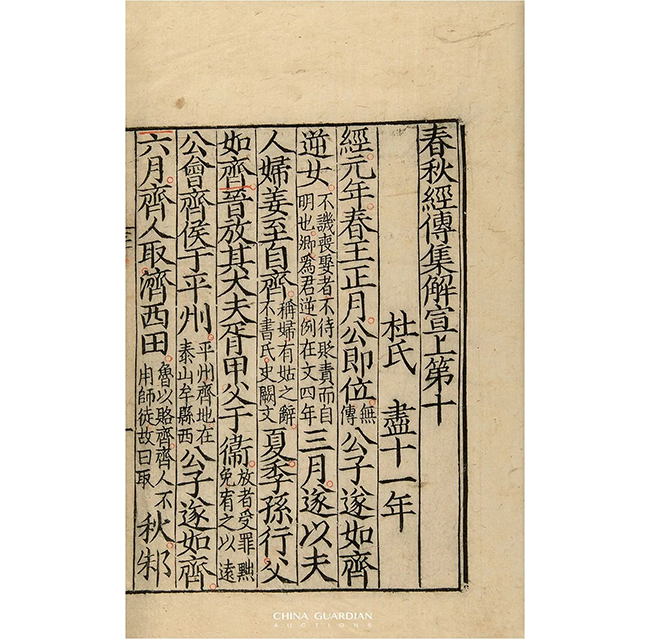 春秋經傳集解宣上第十
杜氏 盡十一年
經元年春王正月公即位無傳公子遂如齊
逆女不譏喪娶者不待貶責而自明也卿為君逆例在文四年三月遂以夫
人婦姜至自齊稱婦有姑之辭不書氏史闕文夏季孫行父
如齊晉放其大夫胥甲父于衞放者受罪黜免宥之以遠
公會齊侯于平州平州齊地在泰山牟縣西公子遂如齊
六月齊人取濟西田魯以賂齊齊人不用師徒故曰取秋邾
CHINA GUARDIAN
AUCTIONS